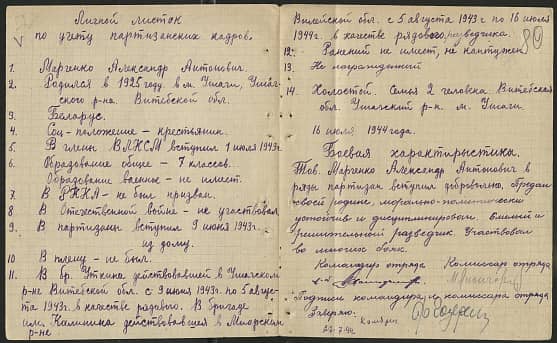 Личной листок
по учету партизанских кадров.
1. Марченко Александр Антонович.
2. Родился в 1925 году. в м. Ушачи, Ушач-
ского р-на. Витебской обл.
3. Беларус.
4. Соц-положение - крестьянин.
5. В члены ВЛКСМ вступил 1 июля 1943г.
6. Образование общее - 7 классов.
Образование военное - не имеет.
7. В РККА - не был призван.
8. В Отечественной войне - не участвовал.
9. В партизаны вступил 9 июня 1943г.
из дому.
10. В плену - не был.
11. В бр. Уткина действовавшей в Ушачском
р-не Витебской обл. с 9 июня 1943г. по 5 авгус-
та 1943г. в качестве рядового. В бригаде
им. Калинина действовавшей в Миорском
р-не
Вилейской обл. с 5 августа 1943г по 16 июля
1944г. в качестве рядового разведчика.
12. Ранений не имеет, не контужен
13. Не награжденный
14. Холостой. Семья 2 человека Витебская
обл. Ушачский р-н. м. Ушачи.
16 июля 1944 года.
Боевая характырыстика.
Тов. Марченко Александр Антонович в
ряды партизан вступил добровольно, предан
своей родине, морально-политически
устойчив и дисциплинирован. Смелый и
решительный разведчик. Участвовал
во многих боях.
Командир отряда Комиссар отряда
Подписи командира и комиссара отряда
Заверяю.